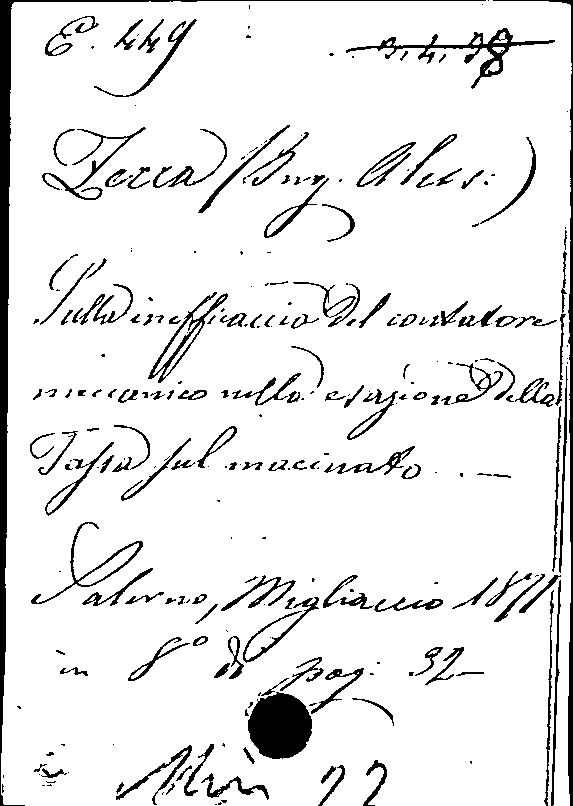 E. 449 3.4.38
Zecca (Ing. Aless:)
Sulla inefficaccia del contatore
meccanico nella esazione della
Tassa sul macinato. —
Palermo, Migliaccio 1871
in 8° di pag. 32
77